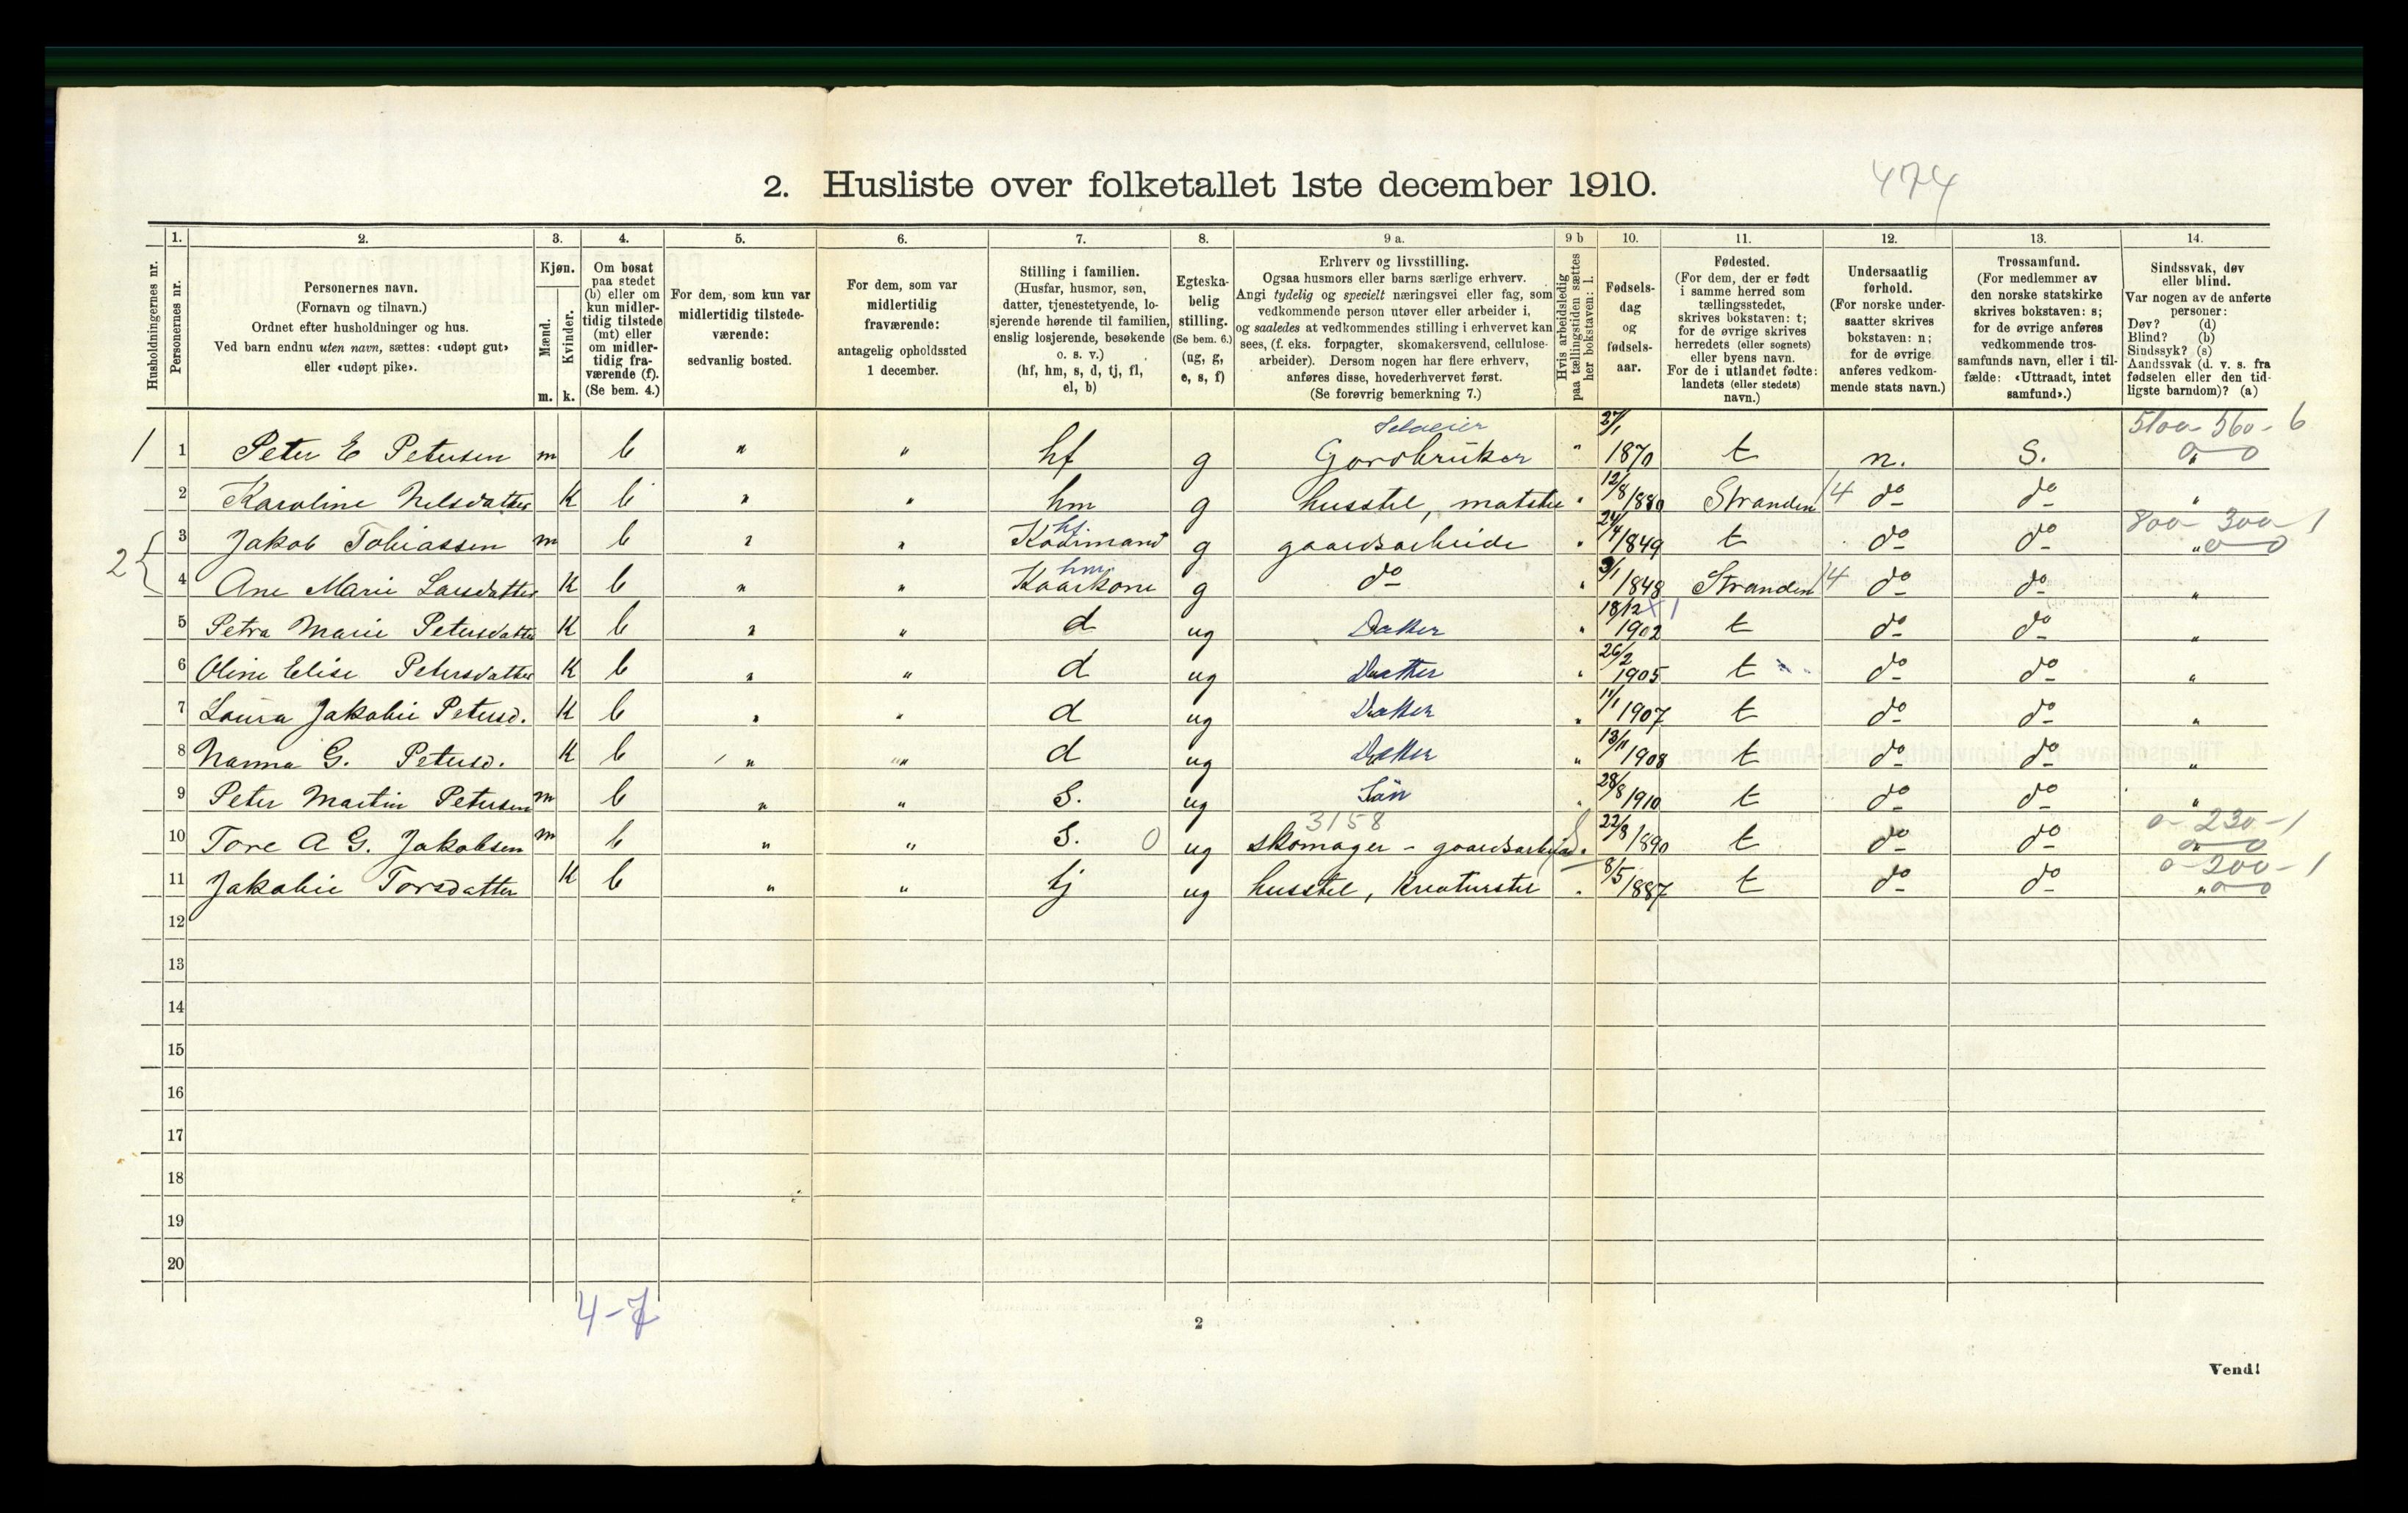 474
2. Husliste over folketallet 1ste december 1910.
Husholdningernes nr.
1. Personernes nr.
2. Personernes navn. (Fornavn og tilnavn.) Ordnet efter husholdninger og hus. Ved barn endnu uten navn, sættes: «udøpt gut» eller «udøpt pike».
3. Kjøn. Mænd. m. Kvinder. k.
4. Om bosat paa stedet (b) eller om kun midlertidig tilstede (mt) eller om midlertidig fraværende (f). (Se bem. 4.)
5. For dem, som kun var midlertidig tilstedeværende: sedvanlig bosted.
6. For dem, som var midlertidig fraværende: antagelig opholdssted 1 december.
7. Stilling i familien. (Husfar, husmor, søn, datter, tjenestetyende, losjerende hørende til familien, enslig losjerende, besøkende o. s. v.) (hf, hm, s, d, tj, fl, el, b)
8. Egteskabelig stilling. (Se bem. 6.) (ug, g, e, s, f)
9 a. Erhverv og livsstilling. Ogsaa husmors eller barns særlige erhverv. Angi tydelig og specielt næringsvei eller fag, som vedkommende person utøver eller arbeider i, og saaledes at vedkommendes stilling i erhvervet kan sees, (f. eks. forpagter, skomakersvend, cellulosearbeider). Dersom nogen har flere erhverv, anføres disse, hovederhvervet først. (Se forøvrig bemerkning 7.)
9 b Hvis arbeidsledig paa tællingstiden sættes her bokstaven: l.
10. Fødselsdag og fødselsaar.
11. Fødested. (For dem, der er født i samme herred som tællingsstedet, skrives bokstaven: t; for de øvrige skrives herredets (eller sognets) eller byens navn. For de i utlandet fødte: landets (eller stedets) navn.)
12. Undersaatlig forhold. (For norske undersaatter skrives bokstaven: n; for de øvrige anføres vedkommende stats navn.)
13. Trossamfund. (For medlemmer av den norske statskirke skrives bokstaven: s; for de øvrige anføres vedkommende trossamfunds navn, eller i tilfælde: «Uttraadt, intet samfund».)
14. Sindssvak, døv eller blind. Var nogen av de anførte personer: Døv? (d) Blind? (b) Sindssyk? (s) Aandssvak (d. v. s. fra fødselen eller den tidligste barndom)? (a)
1 1 Peter E Petersen m b " " hf g Selveier Gardbruker " 27/1 1870 t n. S. 5100 - 560 - 6 " 0 0
2 Karoline Nelsdatter K b " " hm g husstel, matstel " 12/8 1880 Stranden 14 do do "
2 { 3 Jakob Tobiassen m b " " hf. Kaarmand g gaardsarbeide " 24/4 1849 t do do 800 - 300 - 1 " 0 0
4 Ane Marie Larsdatter K b " " hm. Kaarkone g do " 3/1 1848 Stranden 14 do do "
5 Petra Marie Petersdatter K b " " d ug Datter " 18/12 1902 x 1 t do do "
6 Oline Elise Petersdatter K b " " d ug Datter " 26/2 1905 t do do "
7 Laura Jakobie Petersd. K b " " d ug Datter " 11/1 1907 t do do "
8 Nanna G. Petersd. K b " " d ug Datter " 13/11 1908 t do do "
9 Peter Martin Petersen m b " " S. ug Sön " 28/8 1910 t do do "
10 Tore A G. Jakobsen m b " " S. 0 ug 3158 skomager - gaardsarbeid " 22/8 1890 t do do 0 - 230 - 1 " 0 0
11 Jakobie Torsdatter K b " " tj ug husstel, Kreaturstel " 8/5 1887 t do do 0 - 200 - 1 " 0 0
12
13
14
15
16
17
18
19
20
4-7
2
Vend!